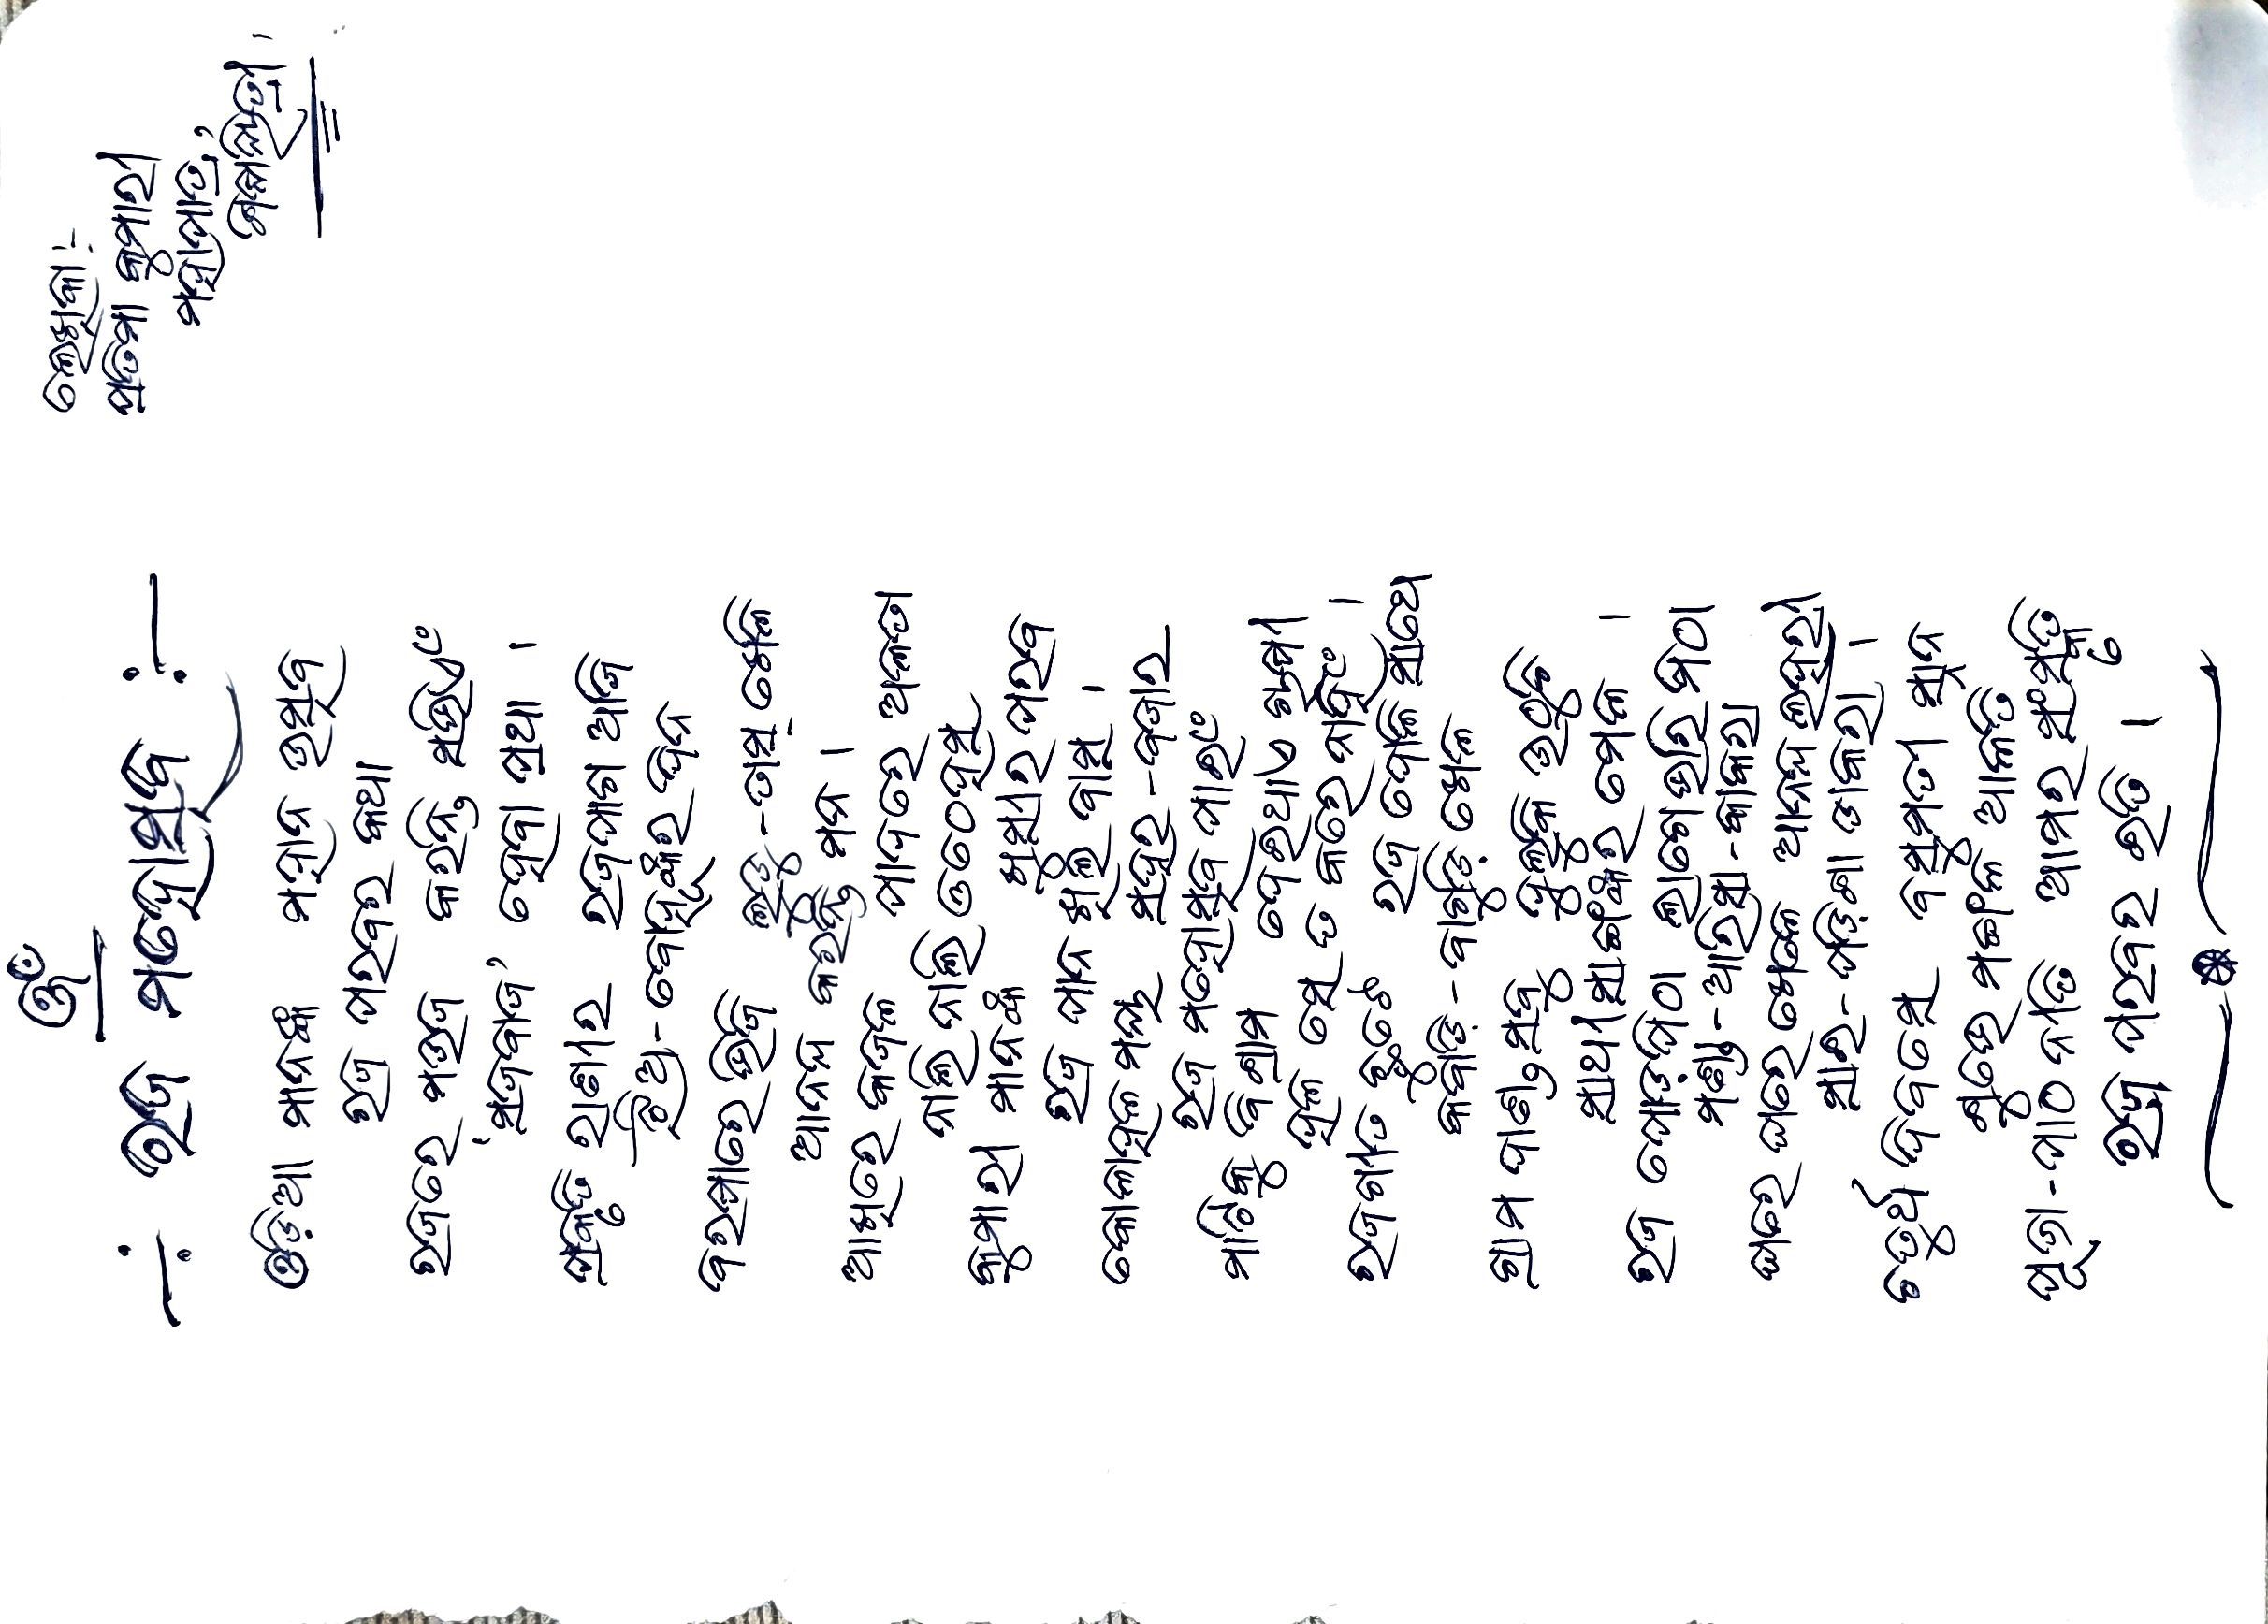 ଓଁ
-: ରଜ ମହୋତ୍ସବ :-
ଲେଖିକା :-
ପ୍ରତିମା କୁମାରୀ
ମହାପାତ୍ର,
ଓଡ଼ିଆ ମାନଙ୍କ ମହାନ ଉତ୍ସବ
ରଜ ପରବର କଥା
ରଜରେ ମଉଜ କରନ୍ତି ସଭିଏଁ
'ସଜବାଜ' ହେବା ପ୍ରଥା ।
ପ୍ରକୃତି ରାଣୀର ରଜପାଗ ଆଜି
ଝିଅ-ବୋହୂଙ୍କର ଦିନ
ବରଷାରେ ଭିଜି ଲୁଡୁ-ତାସ୍ ଖେଳି
ଆନନ୍ଦ କରନ୍ତି ମନ ।
ଆଖିରେ କଜଳ ପାଦରେ ଅଳତା
ନାଲି ନାଲି ଓଠେ ହସ
କୁମାରୀ ମାନଙ୍କ ଖୁସୀର ପରବ
ରଜ ପାନ ଖିଲ ବାସ ।
କୋଳାହଳ ମୟ ସହର-ବଜାର
ରଜ ମହୋତ୍ସବ ପାଇଁ
ମାଟିକୁ ବିଶ୍ରାମ ଦେଇଥାଏ ଚାଷୀ
ହଳ ସେ ତ କରେ ନାହିଁ ।
ରଜଗୀତ ଛୁଟେ ରଜ ଦୋଳି ସାଥେ
କବାଡ଼ି-ବାଗୁଡ଼ି ଖେଳ
ଗ୍ରାମ ଦାଣ୍ଡ ସବୁ ହୁଲୁକି ଉଠୁଚି
ସାଥୀସାଙ୍ଗଙ୍କର ମେଳ ।
ରଜ ପୋଡ଼ପିଠା ଲାଗେ ଭାରି ମିଠା
ମଣ୍ଡା-ଆରିସା-କାକରା
ଘରେ ଘରେ ଖେଳେ ଆନନ୍ଦ ଲହରୀ
ସାଇ-ପଡ଼ିଶା ଡାକରା ।
ଚତୁର୍ଥ ଦିବସେ ବସୁମତୀ ସ୍ନାନ
ଶୁଭେ ମଙ୍ଗଳ ଆଳତି
ପୂଜା-ପାଠ ନୀତି ଆମର ସଂସ୍କୃତି
ରଜ ପରବର ଇତି ।